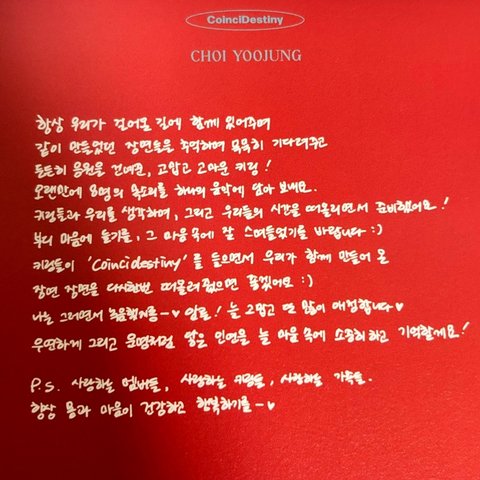 CoinciDestiny
CHOI YOOJUNG
항상 우리가 걸어온 길에 함께 있어주며
같이 만들었던 장면들을 추억하며 묵묵히 기다려주고
든든히 응원을 건네준, 고맙고 고마운 키링!
오랜만에 8명의 목소리를 하나의 음악에 담아 보내요.
키링들과 우리를 생각하며, 그리고 우리들의 시간을 떠올리면서 준비했어요!
부디 마음에 들기를, 그 마음 속에 잘 스며들었기를 바랍니다 :)
키링들이 'Coincidestiny'를 들으면서 우리가 함께 만들어 온
장면 장면을 다시한번 떠올려줬으면 좋겠어요 :)
나는 그러면서 녹음했거든~♥ 암튼! 늘 고맙고 또 많이 애정합니다♥
우연하게 그리고 운명처럼 닿은 인연을 늘 마음 속에 소중히하고 기억할게요!
P.s. 사랑하는 멤버들, 사랑하는 키링들, 사랑하는 가족들.
항상 몸과 마음이 건강하고 행복하기를~♥